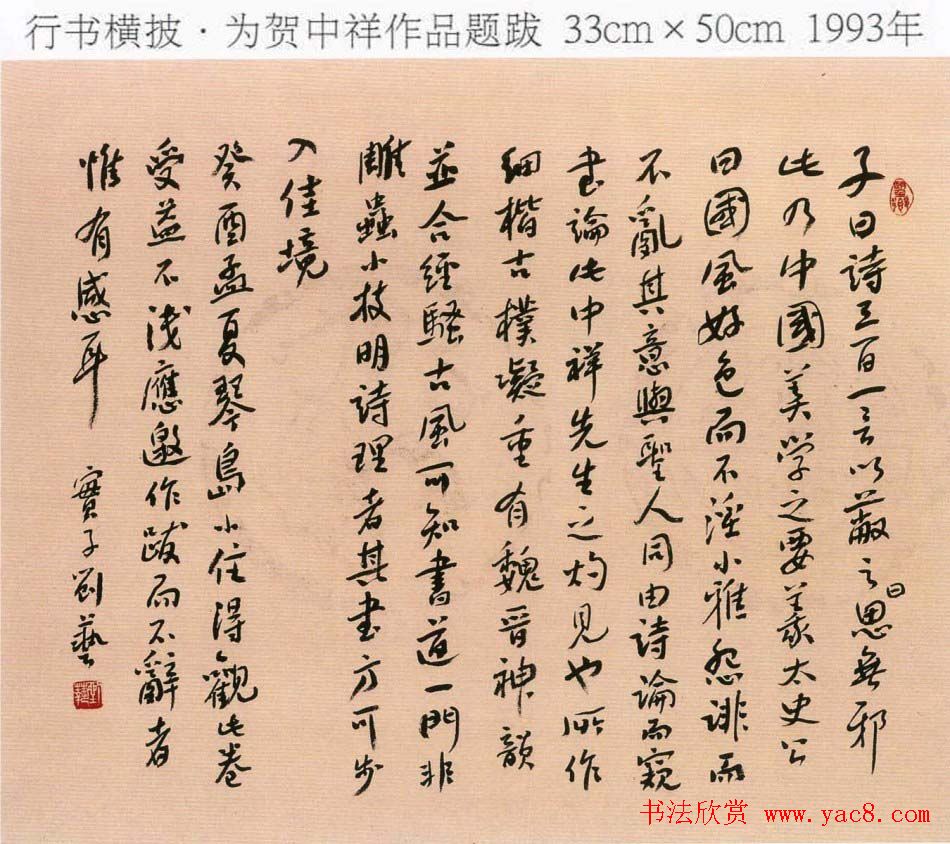 行书横披·为贺中祥作品题跋 33cm×50cm 1993年
子曰詩三百一言以蔽之曰思無邪
此乃中國美學之要義太史公
曰國風好色而不淫小雅怨誹而
不亂其意與聖人同由詩論而窺
书論此中祥先生之灼見也所作
細楷古樸凝重有魏晉神韻
並合經騷古風可知書道一門非
雕蟲小技明詩理者其書方可步
入佳境
癸酉孟夏琴島小住得觀此卷
受益不淺應邀作跋而不辭者
惟有感耳 實子劉藝
书法欣赏 www.yac8.com